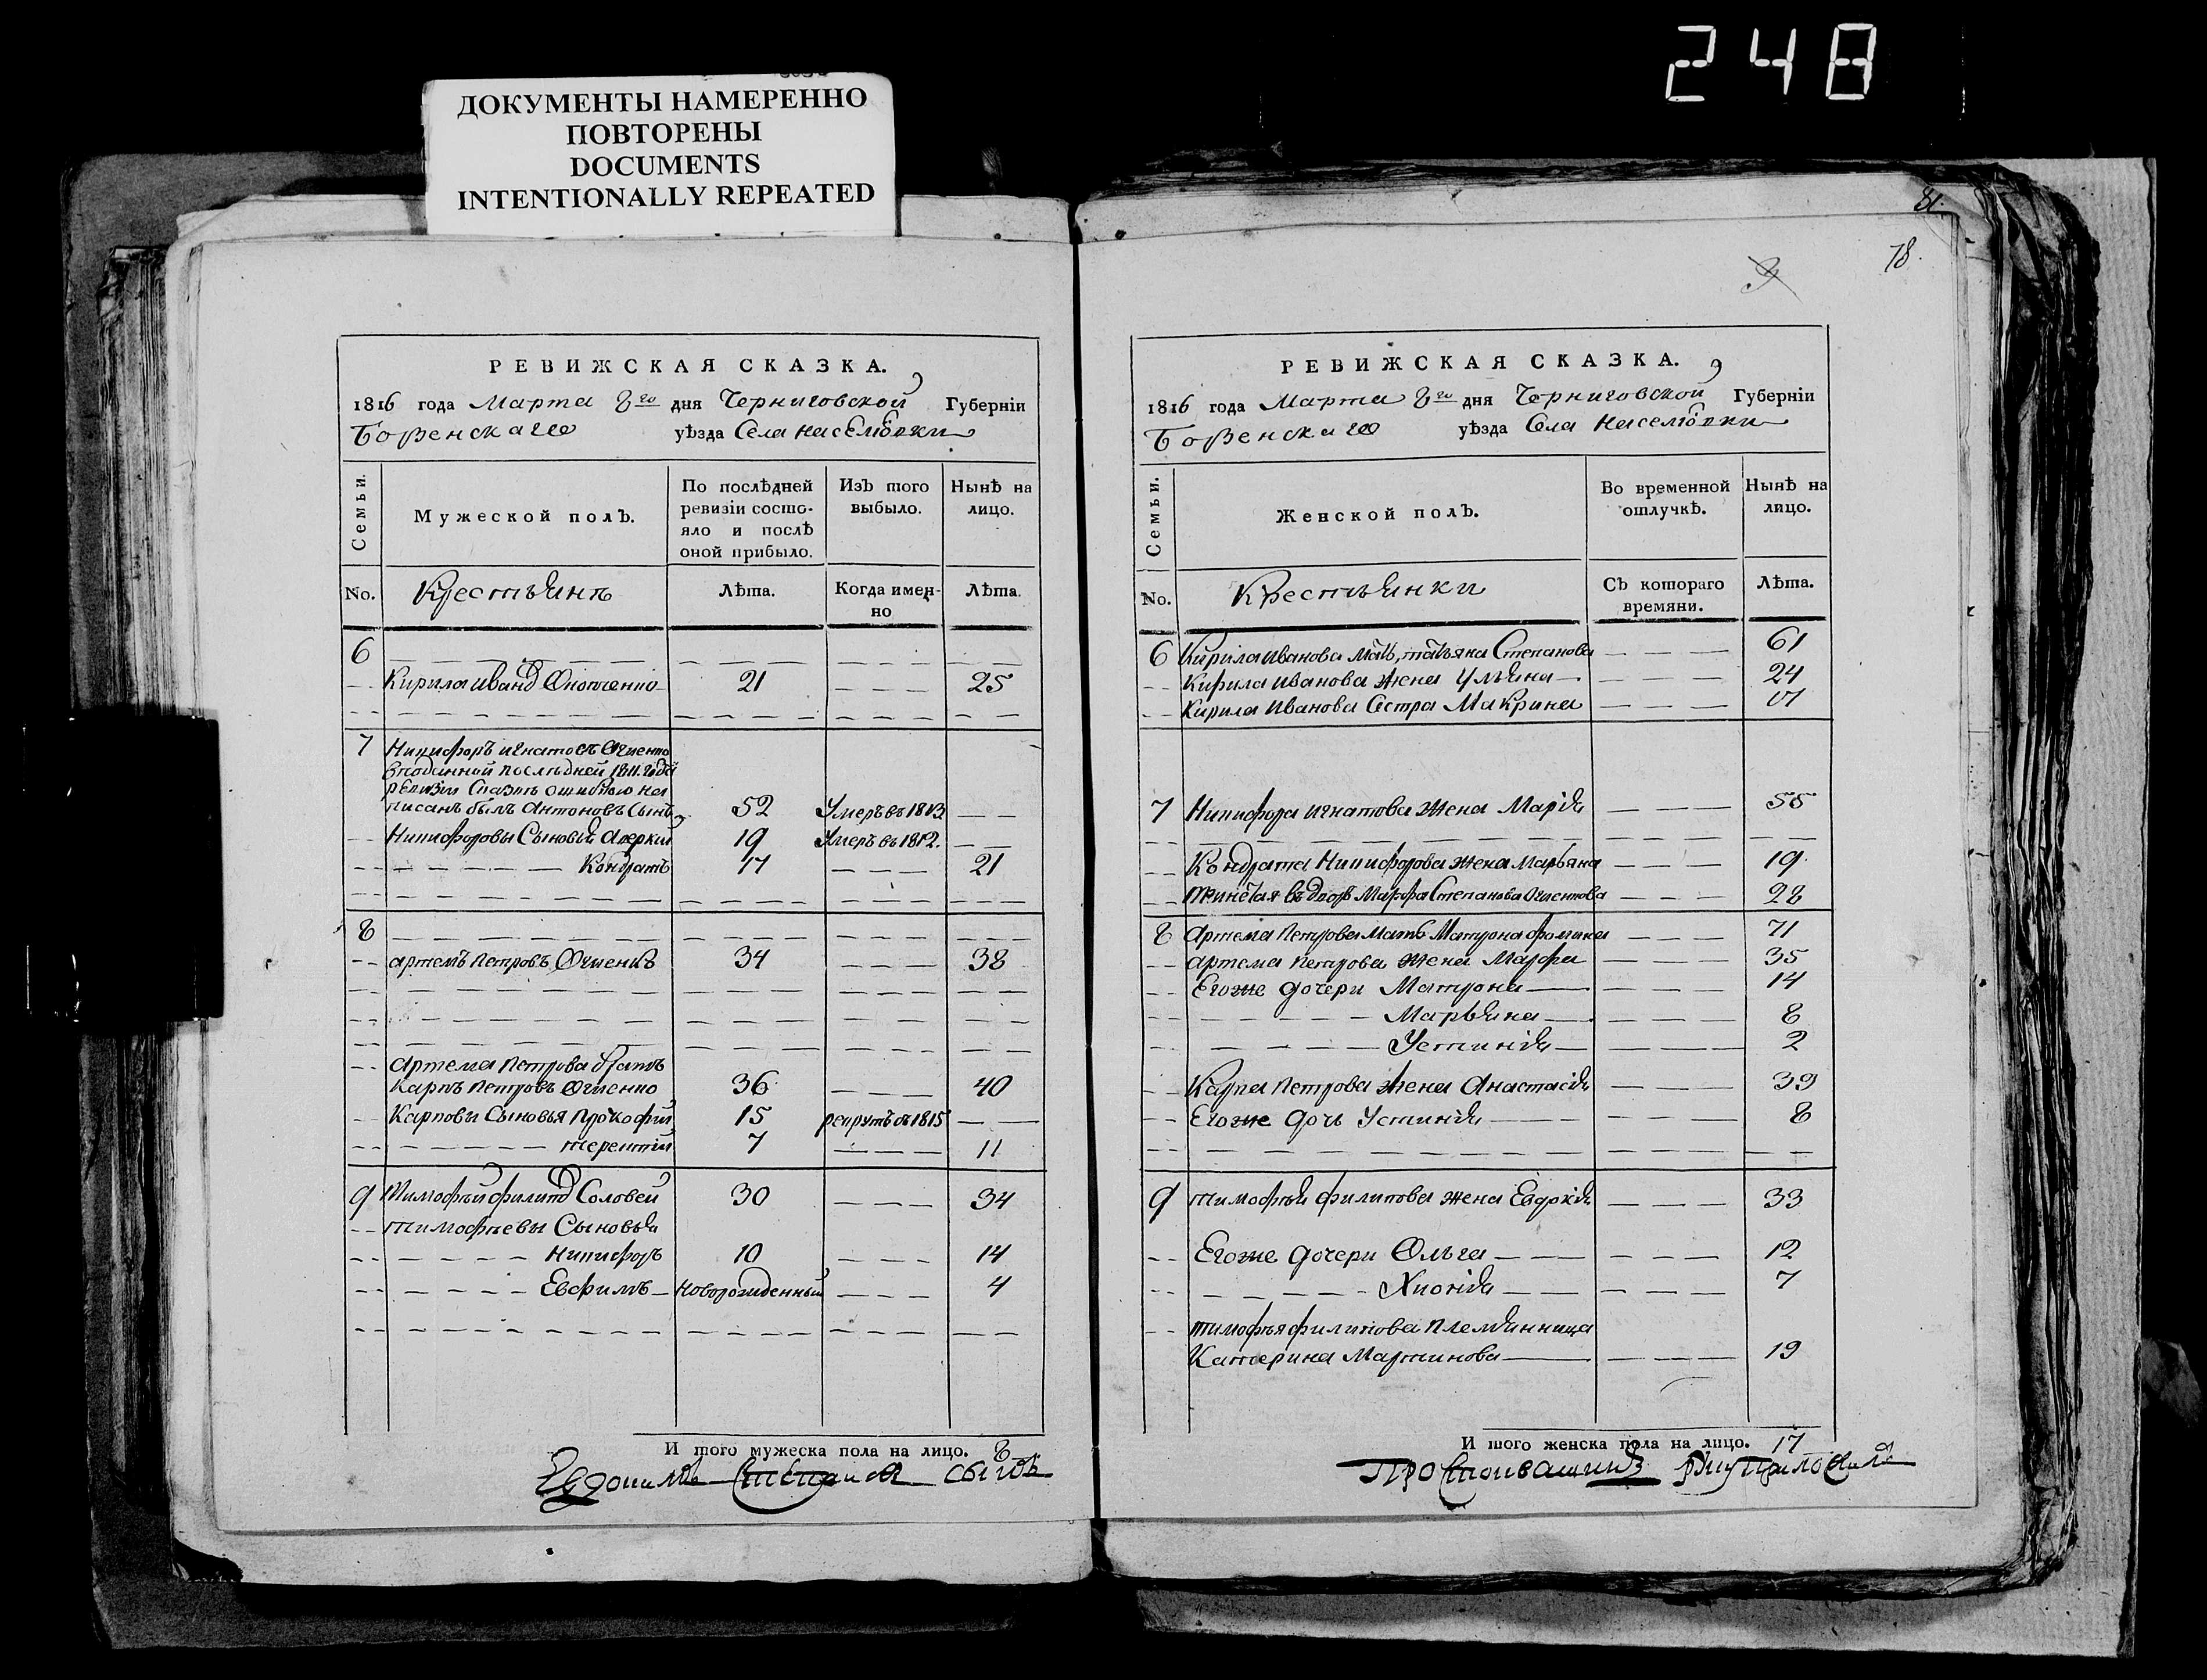 248
ДОКУМЕНТЫ НАМЕРЕННО
ПОВТОРЕНЫ
DOCUMENTS
INTENTIONALLY REPEATED
РЕВИЖСКАЯ СКАЗКА.
1816 года Марта 8го дня Черниговской Губернїи
Борзенскаго уѣзда Села
Семьи. Мужеской полЪ. По послѣдней ревизїи состояло и послѣ оной прибыло. ИзЪ того выбыло. НынѢ на лицо.
No. Крестьянъ Лѣта. Когда именно Лѣта.
6
Кирила Иванъ 21 25
7 Никифоръ Игнатовъ
последней 1811 года
ревизїи ошибкою на
писанъ былъ Антоновъ Сынъ 52 Умеръ въ 1813
Никифоровы Сыновья Аверкий 19 Умеръ въ 1812.
Кондратъ 17 21
8
Артемъ Петровъ 34 38
Артема Петрова братъ
Карпъ Петровъ 36 40
Карповы Сыновья Прокофий 15 рекрутъ въ 1815
Терентий 7 11
9 Тимофѣй Филипъ Соловей 30 34
Тимофѣевы Сыновья
Никифоръ 10 14
Евфимъ Новорожденный 4
И того мужеска пола на лицо. 8
81.
78.
РЕВИЖСКАЯ СКАЗКА. 9
1816 года Марта 8го дня Черниговской Губернїи
Борзенскаго уѣзда Села
Семьи. Женской полЪ. Во временной отлучкѢ. НынѢ на лицо.
No. Крестьянки СЪ котораго времяни. Лѣта.
6 Кирила Иванова мать, татьяна Степанова 61
Кирила Иванова жена Ульяна 24
Кирила Иванова Сестра Макрина
7 Никифора Игнатова жена Марїя 55
Кондрата Никифорова жена Марьяна 19.
Марфа Степанова 22
8 Артема Петрова Мать Матрона 71
Артема Петрова жена Марфа 35
Егоже дочери Матрона 14
Марьяна 8
Устинїя 2
Карпа Петрова жена Анастасїя 39
Егоже дочь Устинїя 8
9 Тимофѣя Филипова жена Евдокїя 33
Егоже дочери Ольга 12
Хионїя 7
Тимофѣя Филипова племянница
Катерина Мартинова 19
И того женска пола на лицо. 17